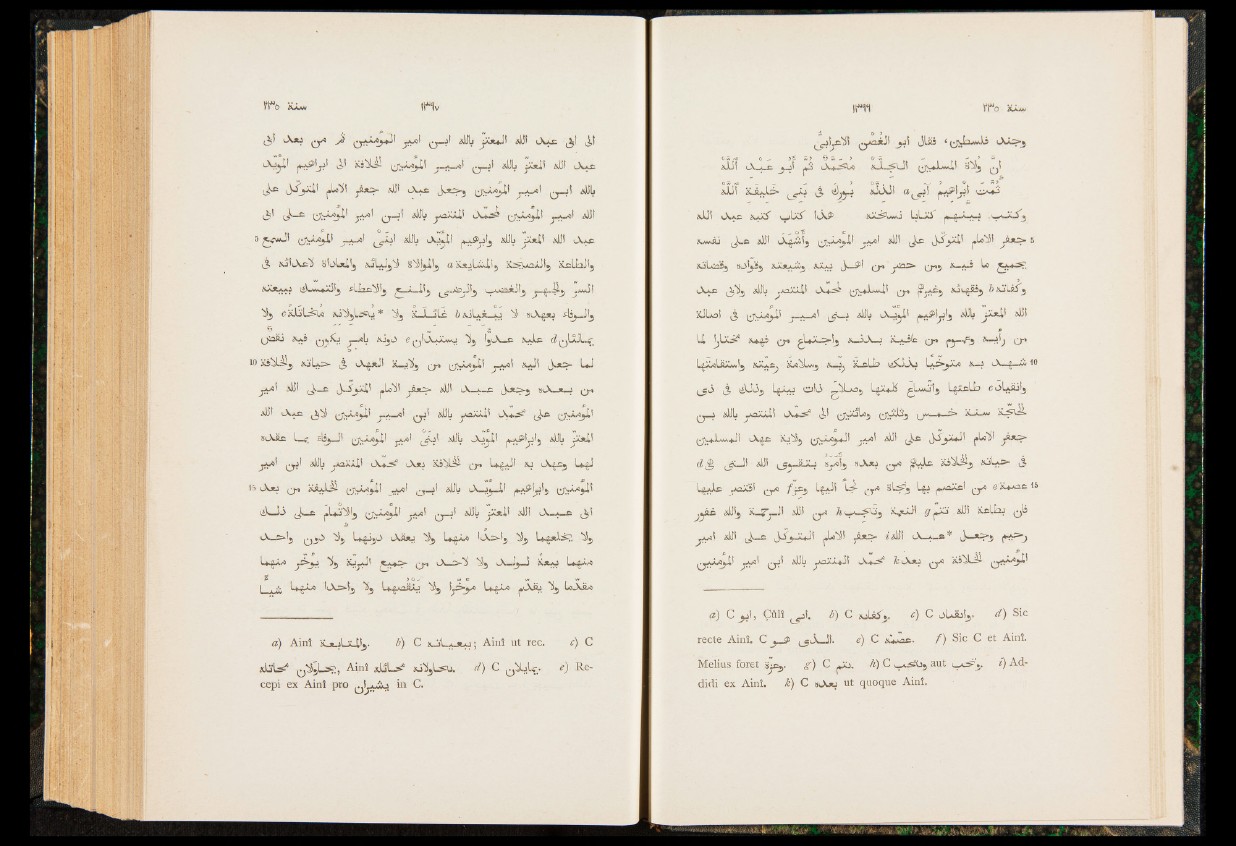 سنة ٢٣٥
١٣٩٦
وجند فلسطين، فقال ابو الغُصْن الاعرابىّ
إِنَّ وُلَاةَ المسلمين الجِلَّهْ مُحَمَّدٌ ثُمَّ أَبُو عَبْدِ ٱللَّهْ
ثُمَّتَ إِبْرٰهِيمُ آبِى a الذِلَّهْ بُورِكَ فى بَنِى خليفَةِ ٱللَّهْ
وكتب بينهم كتابا نسخته هذا كتاب كتبه عبد الله
5 جعفر الامام المتوكّل على الله امير المؤمنين وأَشْهَدَ الله على نفسه
بجميع ما فيه ومن حضر من اهل بيته وشيعته وقوّاده وقضاته
وكُفاته b وفقهائه وغيرهم من المسلمين لمحمّد المنتصر بالله ولابى عبد
الله المعتزّ بالله وابراهيم المؤيّد بالله بنى امير المؤمنين فى اصالة
من رأيه وعموم من عافية بدنه واجتماع من فهمه مختارًا لما
10 شهد به متوخّيا بذلك طاعة ربّه وسلامة رعيّته واستقامتها
وانقيادَ c طاعتها واتّساع كلمتها وصلاح ذات بينها وذلك فى ذى
الحجّة سنة خمس وثلثين ومائتين الى محمّد المنتصر بالله بن
جعفر الامام المتوكّل على الله امير المؤمنين ولاية عهد المسلمين
فى حياته والخلافة عليهم من بعده وأَمَرَه بتقوى الله التى هى d
15 عصمة e من اعتصم بها ونجاة من لجأ اليها وعزّ f من اقتصر عليها
فان بطاعة الله تتمّ g النعمة وتجب h من الله الرحمة والله غفور
رحيم وجعل *عبد الله i جعفر الامام المتوكّل على الله امير
المؤمنين الخلافة من بعد k محمّد المنتصر بالله ابن امير المؤمنين
a) C ابو, Çûlî ابى. b) C وكفاته. c) C وانقاد. d) Sic
recte Ainî. C الذى هو. e) C عصمه. f) Sic C et Ainî.
Melius foret وعزة. g) C تتم. h) C وتجب aut وبجب. i) Ad-
didi ex Ainî. k) C بعده ut quoque Ainî.
١٣٩٧
سنة ٢٣٥
الى ابى عبد الله المعتزّ بالله ابن امير المؤمنين ثم من بعد ابى
عبد الله المعتزّ بالله ابن امير المؤمنين الخلافة الى ابراهيم المؤيّد
بالله ابن امير المؤمنين وجعل عبد الله جعفر الامام المتوكّل على
الله امير المؤمنين لمحمّد المنتصر بالله ابن امير المؤمنين على ابى
5 عبد الله المعتزّ بالله وابراهيم المؤيّد بالله ابنَىْ امير المؤمنين السمع
والطاعة والنصيحة والمشايعة a والموالاة لاوليائه والمعاداة لاعدائه فى
السرّ والجهر والغضب والرضى والمنع والاعطاء والتمسّك ببيعته
والوفاء بعهده لا يبغيانه b غائلة ولا *يحاولانه مُخاتَلةً c ولا
يمالئان d عليه عدوًّا ولا يستبدّان e دونه بامر يكون فيه نقض
10 لما جعل اليه امير المؤمنين من ولاية العهد فى حياته والخلافة
من بعده وجعل عبد الله جعفر الامام المتوكّل على الله امير
المؤمنين على محمّد المنتصر بالله ابن امير المؤمنين لابى عبد الله
المعتزّ بالله وابراهيم المؤيّد بالله ابنَىْ امير المؤمنين الوفاء بما عقده
لهما وعهد به اليهما من الخلافة بعد محمّد المنتصر بالله ابن امير
15 المؤمنين وابراهيم المؤيّد بالله ابن امير المؤمنين الخليفة من بعد
ابى عبد الله المعتزّ بالله ابن امير المؤمنين والإتمام على ذلك
ولا يخلعهما ولا واحدًا منهما ولا يعقد دونهما ولا دون واحد
منهما بيعة لولد ولا لاحد من جميع البريّة ولا يؤخّر منهما
مقدّما ولا يقدّم منهما مؤخّرا ولا ينقُصهما ولا واحدا منهما شيئًا
a) Ainî والمتابعة. b) C يبغيانه; Ainî ut rec. c) C
يحاولان مخاتله, Ainî يحاولانه مخاتله. d) C يمايلان. e) Re-
cepi ex Ainî pro يشيران in C.